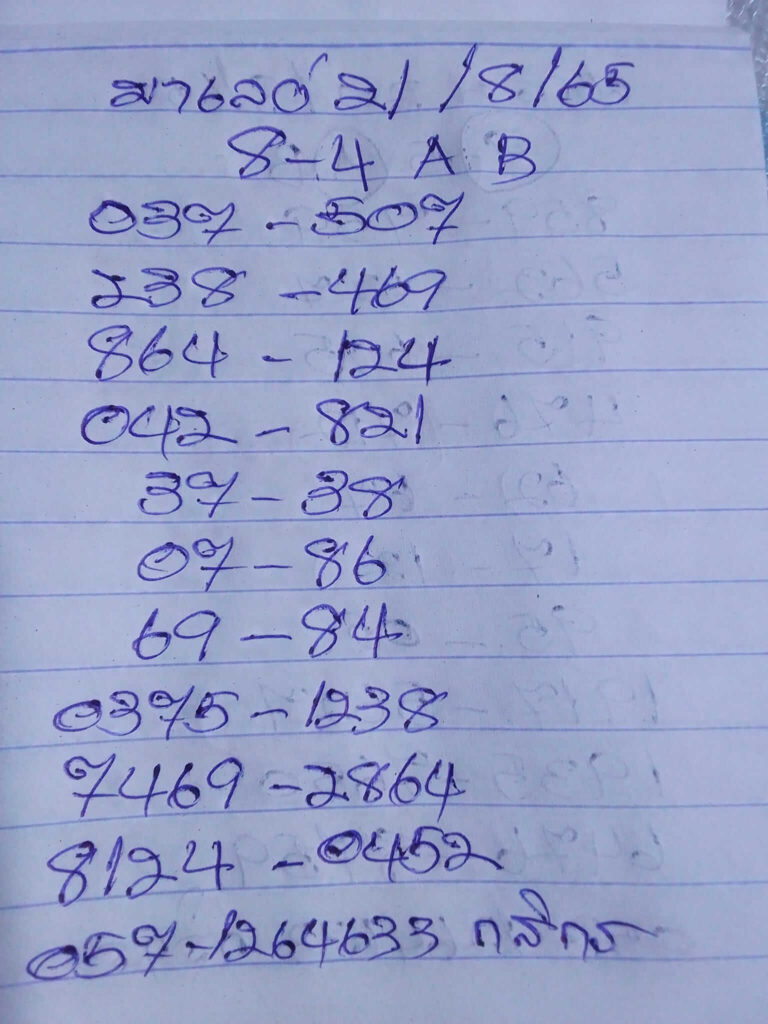 มาเลย์ 21/8/65
8-4 A B
037 - 507
238 - 469
864 - 124
042 - 821
37 - 38
07 - 86
69 - 84
0375 - 1238
7469 - 2864
8124 - 0452
057-1264633 กสิกร